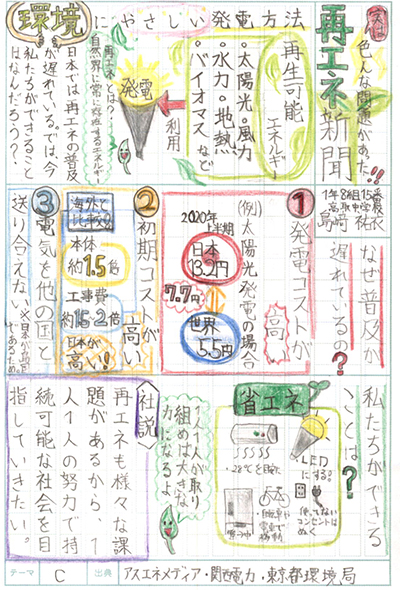 実は
色んな問題があった!!
再エネ新聞
1年8組15番
高取中学校
島﨑
環境にやさしい発電方法
再生可能
エネルギー
・太陽光・風力
・水力・地熱
・バイオマスなど
利用
発電
再エネとは?
自然界に常に存在するエネルギー
日本では再エネの普及
が遅れている。では、今
私たちができること
はなんだろう?
なぜ普及が
遅れているの?
①
発電コストが
高い
(例)太陽光発電の場合
2020年
上半期
日本
13.2円
7.7円
世界
5.5円
②
初期コストが
高い
海外と
比較
本体
約1.5倍
工事費
約1.5~2倍
日本が
高い!
③
電気を他の国と
送り合えない
※日本が島国
であるため
私たちができる
ことは?
省エネ
LED
にする。
・28℃を目安
使ってない
コンセントは
ぬく
・自転車や
電車で
移動
1人1人が取り
組めば大きな
力になるよ!
〈社説〉
再エネも様々な課
題があるから、1
人1人の努力で持
続可能な社会を目
指していきたい。
テーマ
C
出典
アスエネメディア・関西電力・東京都環境局